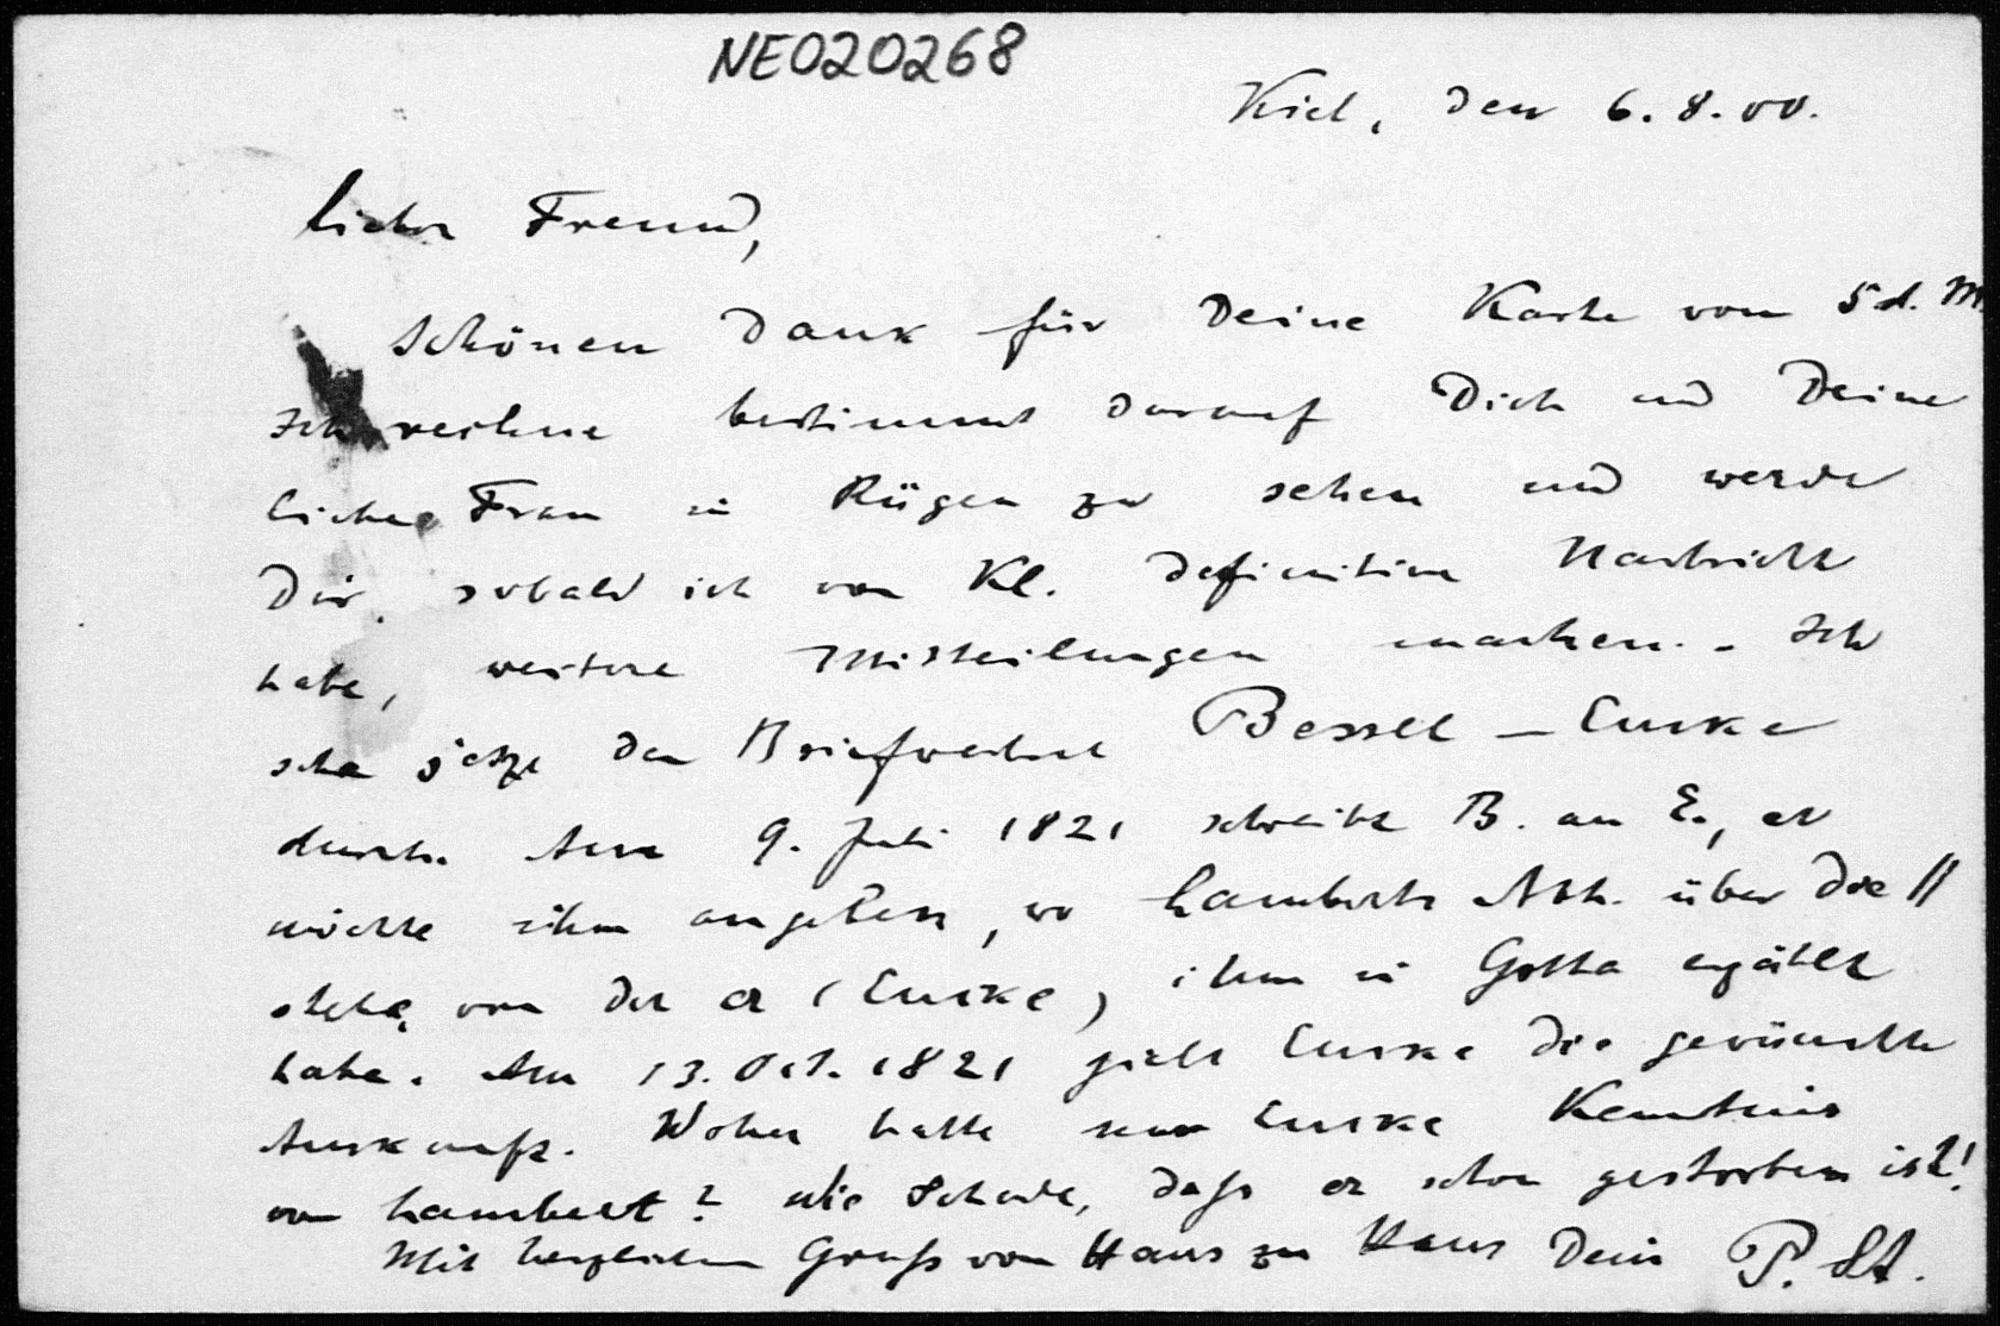 NE020268
Kiel, den 6.8.00.
Lieber Freund,
Schönen Dank für Deine Karte vom 5 d. M.
Ich rechne bestimmt darauf Dich und Deine
liebe Frau in Rügen zu sehen und werde
Dir, sobald ich von Kl. definitive Nachricht
habe, weitere Mitteilungen machen. - Ich
sehe jetzt den Briefwechsel Bessel - Encke
durch. Am 9. Juli 1821 schreibt B. an E., er
möchte ihm angeben, wo Lamberts Abh. über die //
stehe, von der er (Encke) ihm in Gotha erzählt
habe. Am 13. Oct. 1821 giebt Encke die gewünschte
Auskunft. Woher hatte nun Encke Kenntnis
von Lambert? Wie Schade, daß er schon gestorben ist!
Mit herzlichem Gruß von Haus zu Haus Dein P. St.